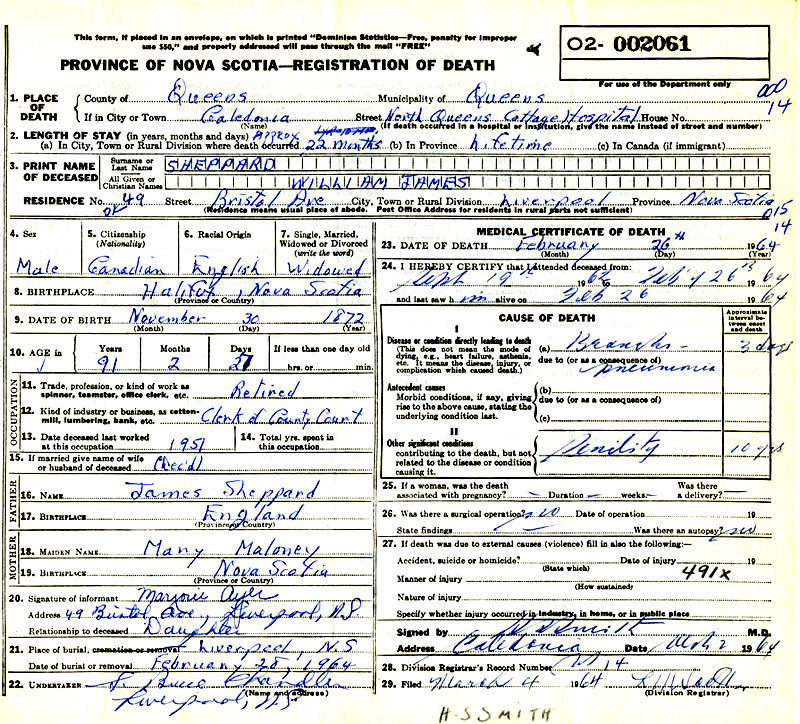 This form, if placed in an envelope, on which is printed "Dominion Statistics—Free, penalty for improper
use $50," and properly addressed will pass through the mail "FREE"
02- 002061
PROVINCE OF NOVA SCOTIA—REGISTRATION OF DEATH
For use of the Department only
000
14
1. PLACE OF DEATH County of Queens Municipality of Queens
If in City or Town Caledonia Street North Queens Cottage Hospital House No.
(Name) (If death occurred in a hospital or institution, give the name instead of street and number)
2. LENGTH OF STAY (in years, months and days) Approx
(a) In City, Town or Rural Division where death occurred 22 months (b) In Province Lifetime (c) In Canada (if immigrant)
3. PRINT NAME OF DECEASED Surname or Last Name SHEPPARD
All Given or Christian Names WILLIAM JAMES
RESIDENCE No. 49 Street Bristol Ave City, Town or Rural Division Liverpool Province Nova Scotia
(Residence means usual place of abode. Post Office Address for residents in rural parts not sufficient)
015
14
4. Sex 5. Citizenship (Nationality) 6. Racial Origin 7. Single, Married, Widowed or Divorced (write the word)
Male Canadian English Widowed
8. BIRTHPLACE Halifax, Nova Scotia
(Province or Country)
9. DATE OF BIRTH November 30 1872
(Month) (Day) (Year)
10. AGE in Years Months Days If less than one day old
91 2 27 hrs. or min.
OCCUPATION
11. Trade, profession, or kind of work as spinner, teamster, office clerk, etc. Retired
12. Kind of industry or business, as cotton-mill, lumbering, bank, etc. Clerk of County Court
13. Date deceased last worked at this occupation 1951 14. Total yrs. spent in this occupation
15. If married give name of wife or husband of deceased (Dec'd)
FATHER
16. NAME James Sheppard
17. BIRTHPLACE England
(Province or Country)
MOTHER
18. MAIDEN NAME Mary Maloney
19. BIRTHPLACE Nova Scotia
(Province or Country)
20. Signature of informant Marjorie Ayer
Address 49 Bristol Ave, Liverpool, N.S
Relationship to deceased Daughter
21. Place of burial, cremation or removal Liverpool, N.S
Date of burial or removal February 28, 1964
22. UNDERTAKER Bruce Chandler
(Name and address)
Liverpool, N.S.
MEDICAL CERTIFICATE OF DEATH
23. DATE OF DEATH February 26th 1964
(Month) (Day) (Year)
24. I HEREBY CERTIFY that I attended deceased from:
Sept 19th 1962 to Feb'y 26th 1964
and last saw him alive on Feb 26 1964
CAUSE OF DEATH
Approximate interval between onset and death
I
Disease or condition directly leading to death (This does not mean the mode of dying, e.g., heart failure, asthenia, etc. It means the disease, injury, or complication which caused death.)
(a) Broncho- 3 days
due to (or as a consequence of)
pneumonia
Antecedent causes
Morbid conditions, if any, giving rise to the above cause, stating the underlying condition last.
(b)
due to (or as a consequence of)
(c)
II
Other significant conditions contributing to the death, but not related to the disease or condition causing it.
Senility 10 yrs
25. If a woman, was the death associated with pregnancy? — Duration — weeks. — Was there a delivery? —
26. Was there a surgical operation? no Date of operation 19
State findings Was there an autopsy? no
27. If death was due to external causes (violence) fill in also the following:—
Accident, suicide or homicide? Date of injury 19
(State which)
491x
Manner of injury
(How sustained)
Nature of injury
Specify whether injury occurred in industry, in home, or in public place
Signed by Smith M.D.
Address Caledonia Date Mch 2 1964
28. Division Registrar's Record Number 14
29. Filed March 4 1964
(Division Registrar)
H-S SMITH